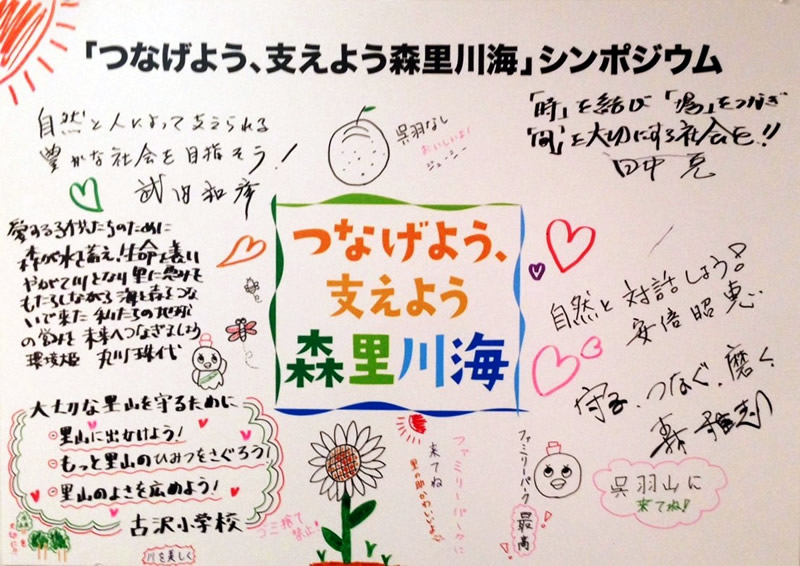 「つなげよう、支えよう森里川海」シンポジウム
自然と人によって支えられる
豊かな社会を目指そう！
武内和彦
呉羽なし
おいしいよ！
ジューシー
「時」を結び「場」をつなぎ
「間」を大切にする社会を!!
田中 克
愛する子供たちのために
森が水を蓄え、生命を養い
やがて川となり里に恵みを
もたらしながら海と森をつな
いで来た 私たちの地球
の営みを 未来へつなぎましょう
環境大臣 丸川珠代
つなげよう、
支えよう
森里川海
自然と対話しよう！
安倍昭恵
守る、つなぐ、磨く
森 雅志
大切な里山を守るために
里山に出かけよう！
もっと里山のひみつをさぐろう！
里山のよさを広めよう！
古沢小学校
川を美しく
ゴミ捨て
禁止！
ファミリーパークに
来てね
ファミリーパーク
最高
呉羽山に
来てね！